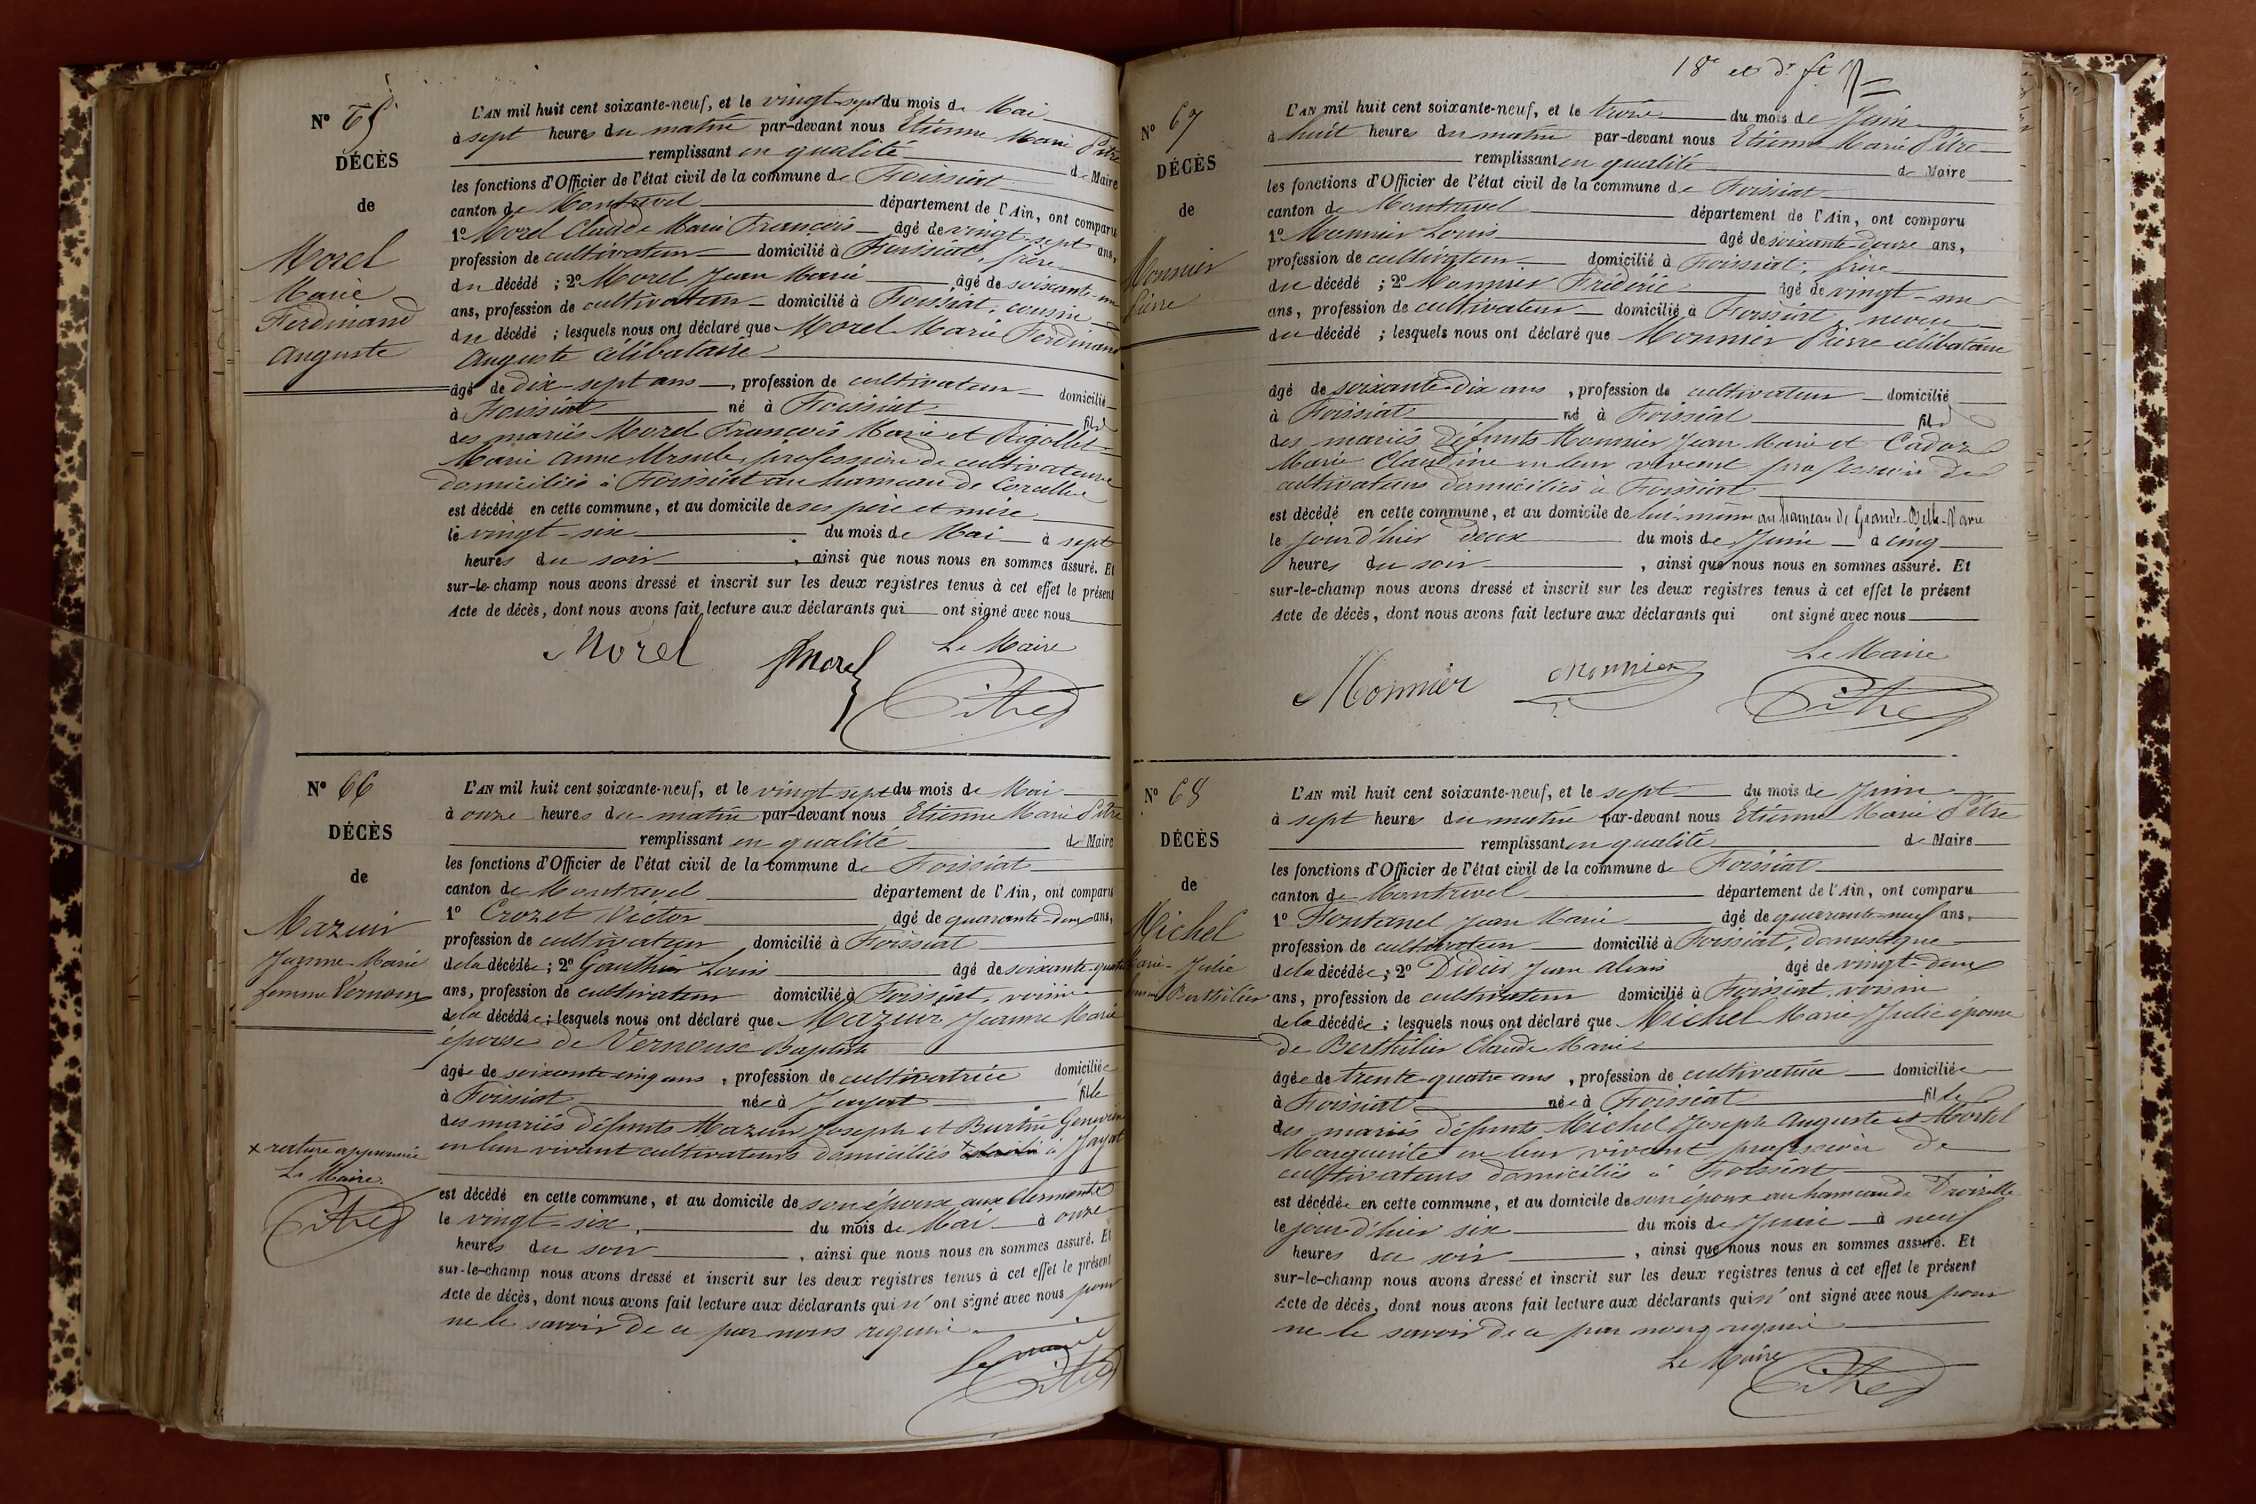 N° 65
DÉCÈS
de
Morel
Marie
Ferdinand
Auguste
L'AN mil huit cent soixante-neuf, et le vingt-sept du mois de Mai
à sept heures du matin par-devant nous Etienne Marie Pitre
remplissant en qualité de Maire
les fonctions d'Officier de l'état civil de la commune de Foissiat
canton de Montrevel département de l'Ain, ont comparu
1° Morel Claude Marie François âgé de vingt-sept ans,
profession de cultivateur domicilié à Foissiat, frère
du décédé ; 2° Morel Jean Marie âgé de soixante-un
ans, profession de cultivateur domicilié à Foissiat, cousin
du décédé ; lesquels nous ont déclaré que Morel Marie Ferdinand
Auguste célibataire
âgé de dix-sept ans, profession de cultivateur domicilié
à Foissiat né à Foissiat fils
des mariés Morel François Marie et Rigollet
Marie Anne Ursule, profession de cultivateurs
domiciliés à Foissiat au hameau de
est décédé en cette commune, et au domicile de ses père et mère
le vingt-six du mois de Mai à sept
heures du soir, ainsi que nous nous en sommes assuré. Et
sur-le-champ nous avons dressé et inscrit sur les deux registres tenus à cet effet le présent
Acte de décès, dont nous avons fait lecture aux déclarants qui ont signé avec nous
Le Maire
Morel Morel Pitre
N° 66
DÉCÈS
de
Mazuir
Jeanne-Marie
femme Vernoux
L'AN mil huit cent soixante-neuf, et le vingt sept du mois de Mai
à onze heures du matin par-devant nous Etienne Marie Pitre
remplissant en qualité de Maire
les fonctions d'Officier de l'état civil de la commune de Foissiat
canton de Montrevel département de l'Ain, ont comparu
1° Crozet Victor âgé de quarante-deux ans,
profession de cultivateur domicilié à Foissiat
de la décédée ; 2° Gauthier Louis âgé de soixante-quatre
ans, profession de cultivateur domicilié à Foissiat, voisin
de la décédée ; lesquels nous ont déclaré que Mazuir Jeanne Marie
épouse de Vernoux Baptiste
âgée de soixante cinq ans, profession de cultivatrice domiciliée
à Foissiat née à Jayat fille
des mariés défunts Mazuir Joseph et Burtin
en leur vivant cultivateurs domiciliés x à Jayat
x rature approuvée
Le Maire
Pitre
est décédé en cette commune, et au domicile de son époux aux
le vingt-six du mois de Mai à onze
heures du soir, ainsi que nous nous en sommes assuré. Et
sur-le-champ nous avons dressé et inscrit sur les deux registres tenus à cet effet le présent
Acte de décès, dont nous avons fait lecture aux déclarants qui n'ont signé avec nous pour
ne le savoir de ce par nous requis
Le Maire
Pitre
18e et dr ft
N° 67
DÉCÈS
de
Monnier
Pierre
L'AN mil huit cent soixante-neuf, et le trois du mois de Juin
à huit heures du matin par-devant nous Etienne Marie Pitre
remplissant en qualité de Maire
les fonctions d'Officier de l'état civil de la commune de Foissiat
canton de Montrevel département de l'Ain, ont comparu
1° Monnier Louis âgé de soixante-douze ans,
profession de cultivateur domicilié à Foissiat, frère
du décédé ; 2° Monnier Frédéric âgé de vingt-un
ans, profession de cultivateur domicilié à Foissiat, neveu
du décédé ; lesquels nous ont déclaré que Monnier Pierre célibataire
âgé de soixante-dix ans, profession de cultivateur domicilié
à Foissiat né à Foissiat fils
des mariés défunts Monnier Jean Marie et Cadoz
Marie Claudine en leur vivant profession de
cultivateurs domiciliés à Foissiat
est décédé en cette commune, et au domicile de lui-même au hameau de Grande-
le jour d'hier deux du mois de Juin à cinq
heures du soir, ainsi que nous nous en sommes assuré. Et
sur-le-champ nous avons dressé et inscrit sur les deux registres tenus à cet effet le présent
Acte de décès, dont nous avons fait lecture aux déclarants qui ont signé avec nous
Le Maire
Monnier Monnier Pitre
N° 68
DÉCÈS
de
Michel
Marie-Julie
femme Berthilier
L'AN mil huit cent soixante-neuf, et le sept du mois de Juin
à sept heures du matin par-devant nous Etienne Marie Pitre
remplissant en qualité de Maire
les fonctions d'Officier de l'état civil de la commune de Foissiat
canton de Montrevel département de l'Ain, ont comparu
1° Fontanel Jean Marie âgé de quarante-neuf ans,
profession de cultivateur domicilié à Foissiat, domestique
de la décédée ; 2° Didier Jean Alexis âgé de vingt-deux
ans, profession de cultivateur domicilié à Foissiat, voisin
de la décédée ; lesquels nous ont déclaré que Michel Marie Julie épouse
de Berthilier Claude Marie
âgée de trente-quatre ans, profession de cultivatrice domiciliée
à Foissiat née à Foissiat fille
des mariés défunts Michel Joseph Auguste et Mortel
Marguerite en leur vivant profession de
cultivateurs domiciliés à Foissiat
est décédée en cette commune, et au domicile de son époux au hameau de
le jour d'hier six du mois de Juin à neuf
heures du soir, ainsi que nous nous en sommes assuré. Et
sur-le-champ nous avons dressé et inscrit sur les deux registres tenus à cet effet le présent
Acte de décès, dont nous avons fait lecture aux déclarants qui n'ont signé avec nous pour
ne le savoir de ce par nous requis
Le Maire
Pitre